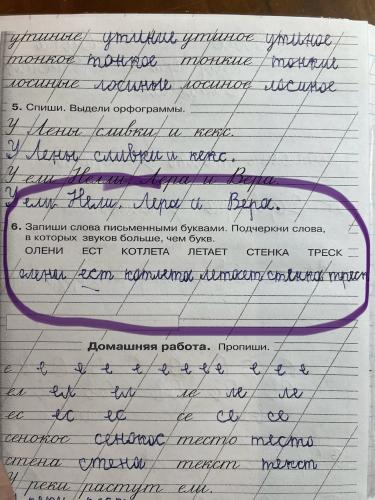 утиные утиные утиное утиное
тонкое тонкое тонкие тонкие
лосиные лосиные лосиное лосиное
5. Спиши. Выдели орфограммы.
У Лены сливки и кекс.
У Лены сливки и кекс.
У ели Нелли, Лера и Вера.
У ели Нели, Лера и Вера.
6. Запиши слова письменными буквами. Подчеркни слова,
в которых звуков больше, чем букв.
ОЛЕНИ ЕСТ КОТЛЕТА ЛЕТАЕТ СТЕНКА ТРЕСК
олени ест котлета летает стенка треск
Домашняя работа. Пропиши.
е е е е е е е е е е е
ел ел ел ле ле ле
ес ес ес се се се
сенокос сенокос тесто тесто
стена стена текст текст
У реки растут ели.